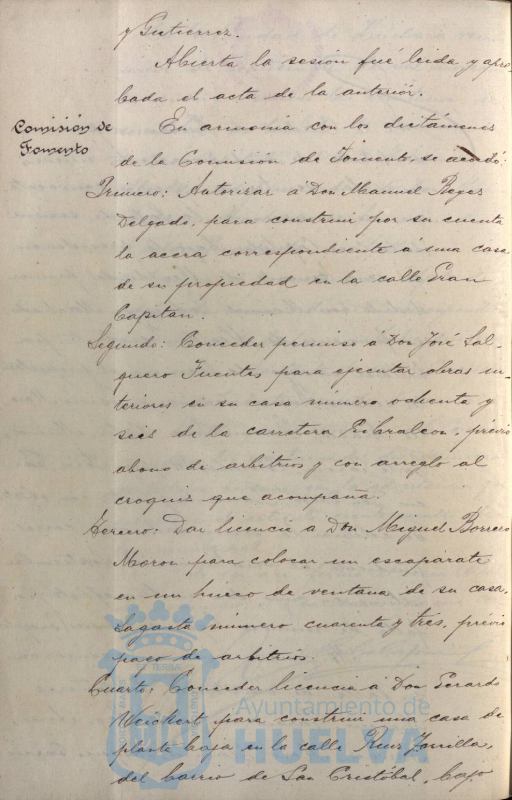 y Gutierrez.
Abierta la sesión fué leida y apro-
bada el acta de la anterior.
Comisión de
Fomento
En armonia con los dictámenes
de la Comisión de Fomento, se acordó:
Primero: Autorizar á Don Manuel Reyes
Delgado, para construir por su cuenta
la acera correspondiente á una casa
de su propiedad en la calle Gran
Capitan.
Segundo: Conceder permiso á Don José Sal-
guero Fuentes, para ejecutar obras in-
teriores en su casa número ochenta y
seis de la carretera Gibraleon, previo
abono de arbitrios y con arreglo al
croquis que acompaña.
Tercero: Dar licencia á Don Miguel Borrero
Moron para colocar un escaparate
en un hueco de ventana de su casa,
Sagasta número cuarenta y tres, previo
pago de arbitrios.
Cuarto: Conceder licencia á Don Gerardo
Weickert, para construir una casa de
planta baja en la calle Ruiz Zorrilla,
del barrio de San Cristóbal, bajo
Ayuntamiento de
HUELVA